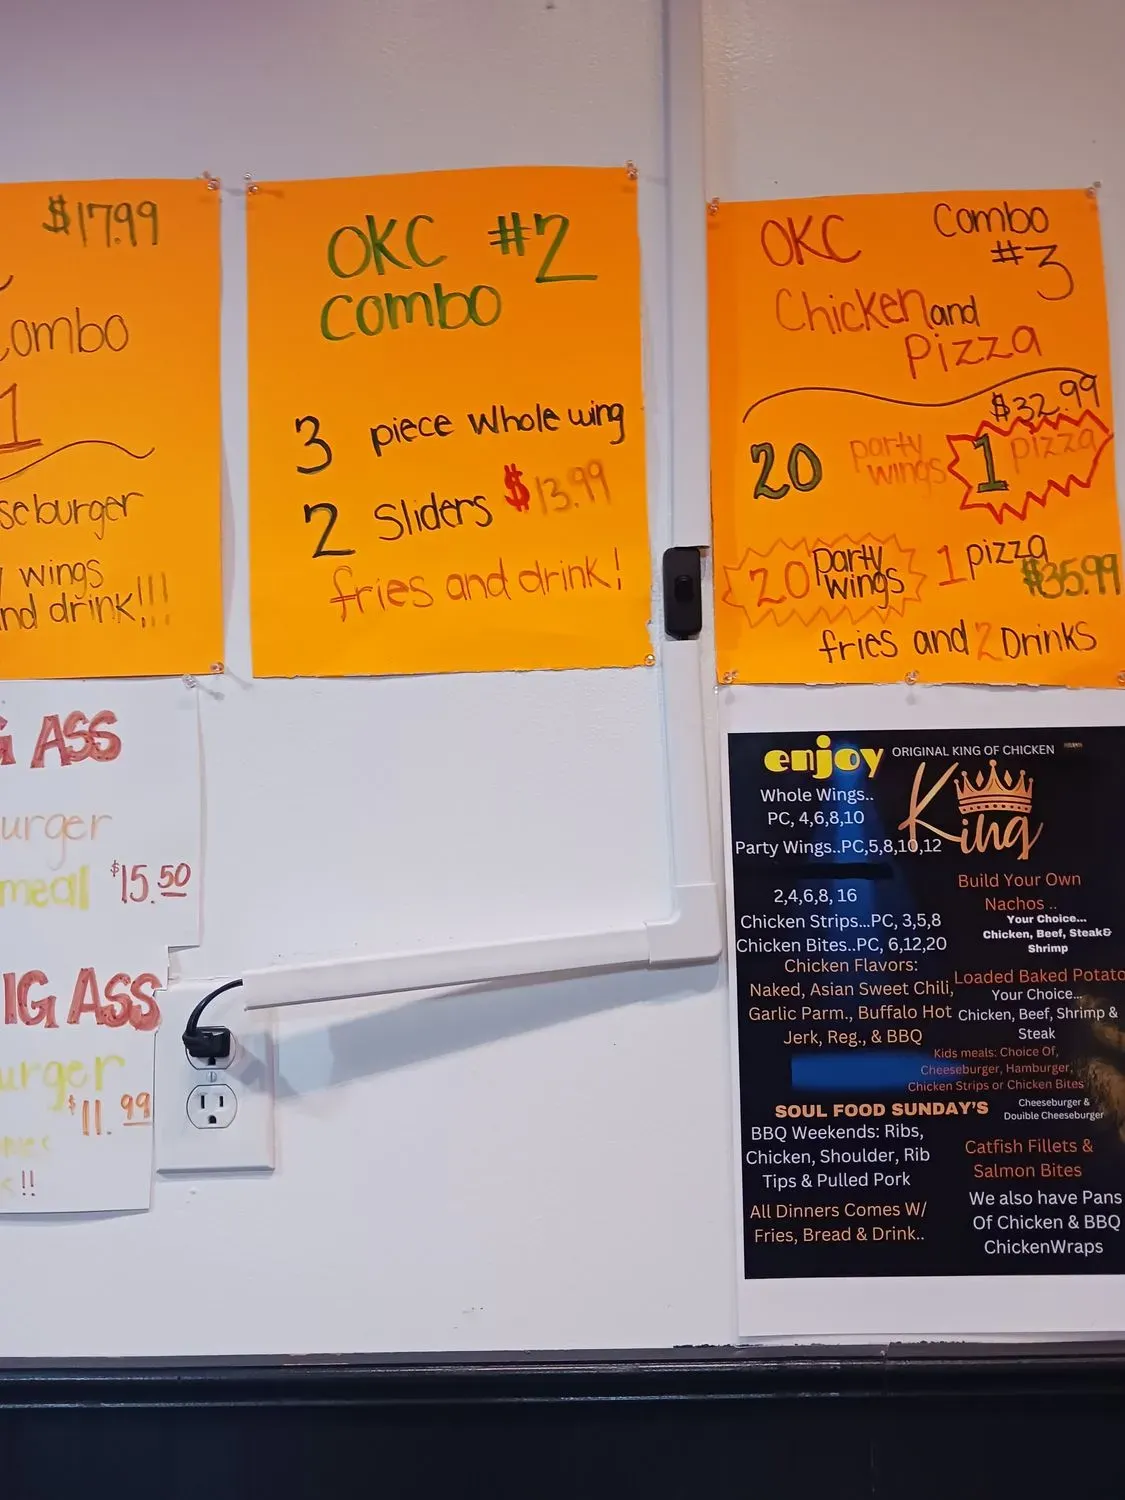 $17.99
ombo
1
seburger
wings
nd drink!!!
OKC #2
Combo
3 piece whole wing
2 Sliders $13.99
fries and drink!
OKC Combo
#3
Chicken and
Pizza
$32.99
20 party wings 1 pizza
20 party wings 1 pizza
$35.99
fries and 2 Drinks
G ASS
urger
meal $15.50
IG ASS
urger
$11.99
s!!
enjoy ORIGINAL KING OF CHICKEN
King
Whole Wings..
PC, 4,6,8,10
Party Wings..PC,5,8,10,12
2,4,6,8, 16
Chicken Strips...PC, 3,5,8
Chicken Bites..PC, 6,12,20
Chicken Flavors:
Naked, Asian Sweet Chili,
Garlic Parm., Buffalo Hot
Jerk, Reg., & BBQ
SOUL FOOD SUNDAY'S
BBQ Weekends: Ribs,
Chicken, Shoulder, Rib
Tips & Pulled Pork
All Dinners Comes W/
Fries, Bread & Drink..
Build Your Own
Nachos ..
Your Choice...
Chicken, Beef, Steak&
Shrimp
Loaded Baked Potato
Your Choice...
Chicken, Beef, Shrimp &
Steak
Kids meals: Choice Of,
Cheeseburger, Hamburger,
Chicken Strips or Chicken Bites
Cheeseburger &
Douible Cheeseburger
Catfish Fillets &
Salmon Bites
We also have Pans
Of Chicken & BBQ
ChickenWraps